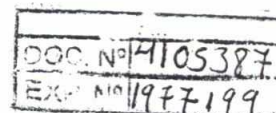 DOC. Nº 4105387
EXP. Nº 1977199